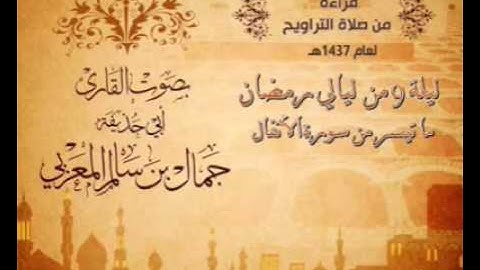 قراءة
من صلاة التراويح
لعام 1437هـ
ليلة ٩ من ليالي رمضان
ما تيسر من سورة الأنفال
بصوت القارئ
أبي حذيفة
جمال بن سالم المغربي